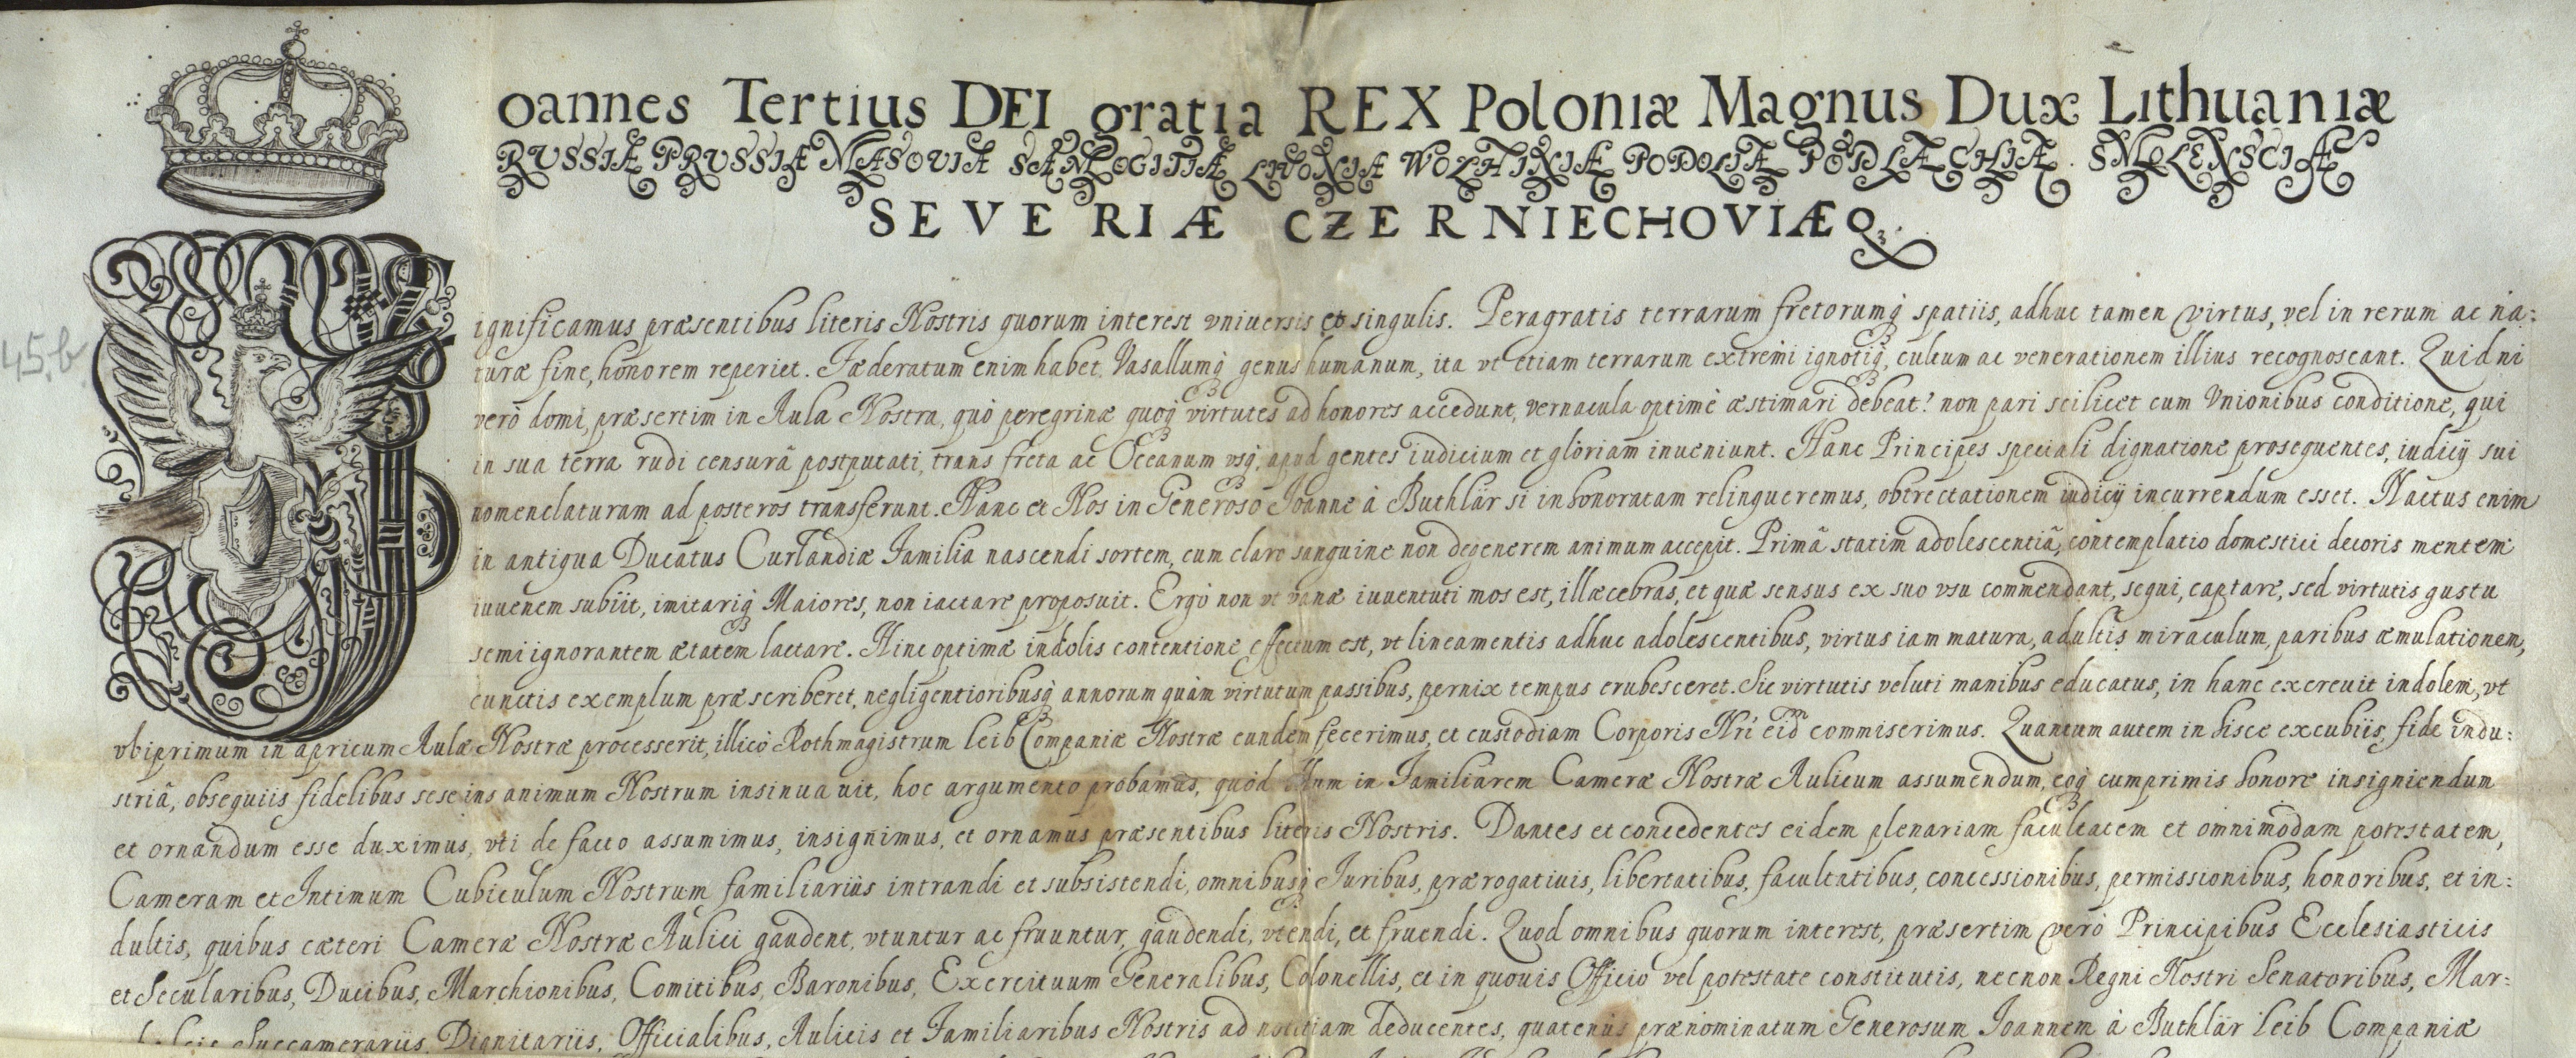 45.b.
Joannes Tertius DEI gratia REX Poloniæ Magnus Dux Lithuaniæ
RUSSIÆ PRUSSIÆ MASOVIÆ SAMOGITIÆ LIVONIÆ WOLHINIÆ PODOLIÆ PODLÆCHIÆ SMOLENSCIÆ
SEVERIÆ CZERNIECHOVIÆQ3.
Significamus præsentibus literis Nostris quorum interest vniuersis et singulis. Peragratis terrarum fretorumq3 spatiis, adhuc tamen virtus, vel in rerum ac na:
turæ fine, honorem reperiet. Fæderatum enim habet Vasallumq3 genus humanum, ita vt etiam terrarum extremi ignotiq3, cultum ac venerationem illius recognoscant. Quid ni
verò domi, præsertim in Aula Nostra, quò peregrinæ quoq3 virtutes ad honores accedunt, vernacula optimè æstimari debeat? non pari scilicet cum Vnionibus conditione, qui
in sua terra rudi censurâ postputati, trans freta ac Oceanum vsq3, apud gentes iudicium et gloriam inueniunt. Hanc Principes speciali dignatione prosequentes, iudicij sui
nomenclaturam ad posteros transferunt. Hanc et Nos in Generoso Joanne à Buthlär si inhonoratam relinqueremus, obtrectationem iudicij incurrendum esset. Nactus enim
in antiqua Ducatus Curlandiæ Familia nascendi sortem, cum claro sanguine non degenerem animum accepit. Primâ statim adolescentiâ, contemplatio domestici decoris mentem
iuuenem subiit, imitariq3 Maiores, non iactare proposuit. Ergò non vt vanæ iuuentuti mos est, illæcebras, et quæ sensus ex suo vsu commendant, sequi, captare, sed virtutis gustu
semiignorantem ætatem lactare. Hinc optimæ indolis contentione effectum est, vt lineamentis adhuc adolescentibus, virtus iam matura, adultis miraculum, paribus æmulationem,
cunctis exemplum præscriberet, negligentioribusq3 annorum quàm virtutum passibus, pernix tempus erubesceret. Sic virtutis veluti manibus educatus, in hanc excreuit indolem, vt
vbiprimum in apricum Aulæ Nostræ processerit, illicò Rothmagistrum Leib Companiæ Nostræ eundem fecerimus, et custodiam Corporis Nri eid commiserimus. Quantum autem in hisce excubiis, fide indu:
striâ, obsequiis fidelibus sese in animum Nostrum insinuauit, hoc argumento probamus, quòd illum in Familiarem Cameræ Nostræ Aulicum assumendum, eoq3 cumprimis honore insigniendum
et ornandum esse duximus, vti de facto assumimus, insignimus, et ornamus præsentibus literis Nostris. Dantes et concedentes eidem plenariam facultatem et omnimodam potestatem,
Cameram et Intimum Cubiculum Nostrum familiariùs intrandi et subsistendi, omnibusq3 Juribus, prærogatiuis, libertatibus, facultatibus, concessionibus, permissionibus, honoribus, et in:
dultis, quibus cæteri Cameræ Nostræ Aulici gaudent, vtuntur ac fruuntur, gaudendi, vtendi, et fruendi. Quod omnibus quorum interest, præsertim verò Principibus Ecclesiasticis
et Secularibus, Ducibus, Marchionibus, Comitibus, Baronibus, Exercituum Generalibus, Colonellis, et in quouis Officio vel potestate constitutis, necnon Regni Nostri Senatoribus, Mar:
Succamerariis, Dignitariis, Officialibus, Aulicis et Familiaribus Nostris ad notitiam deducentes, quatenùs prænominatum Generosum Joannem à Buthlär Leib Companiæ